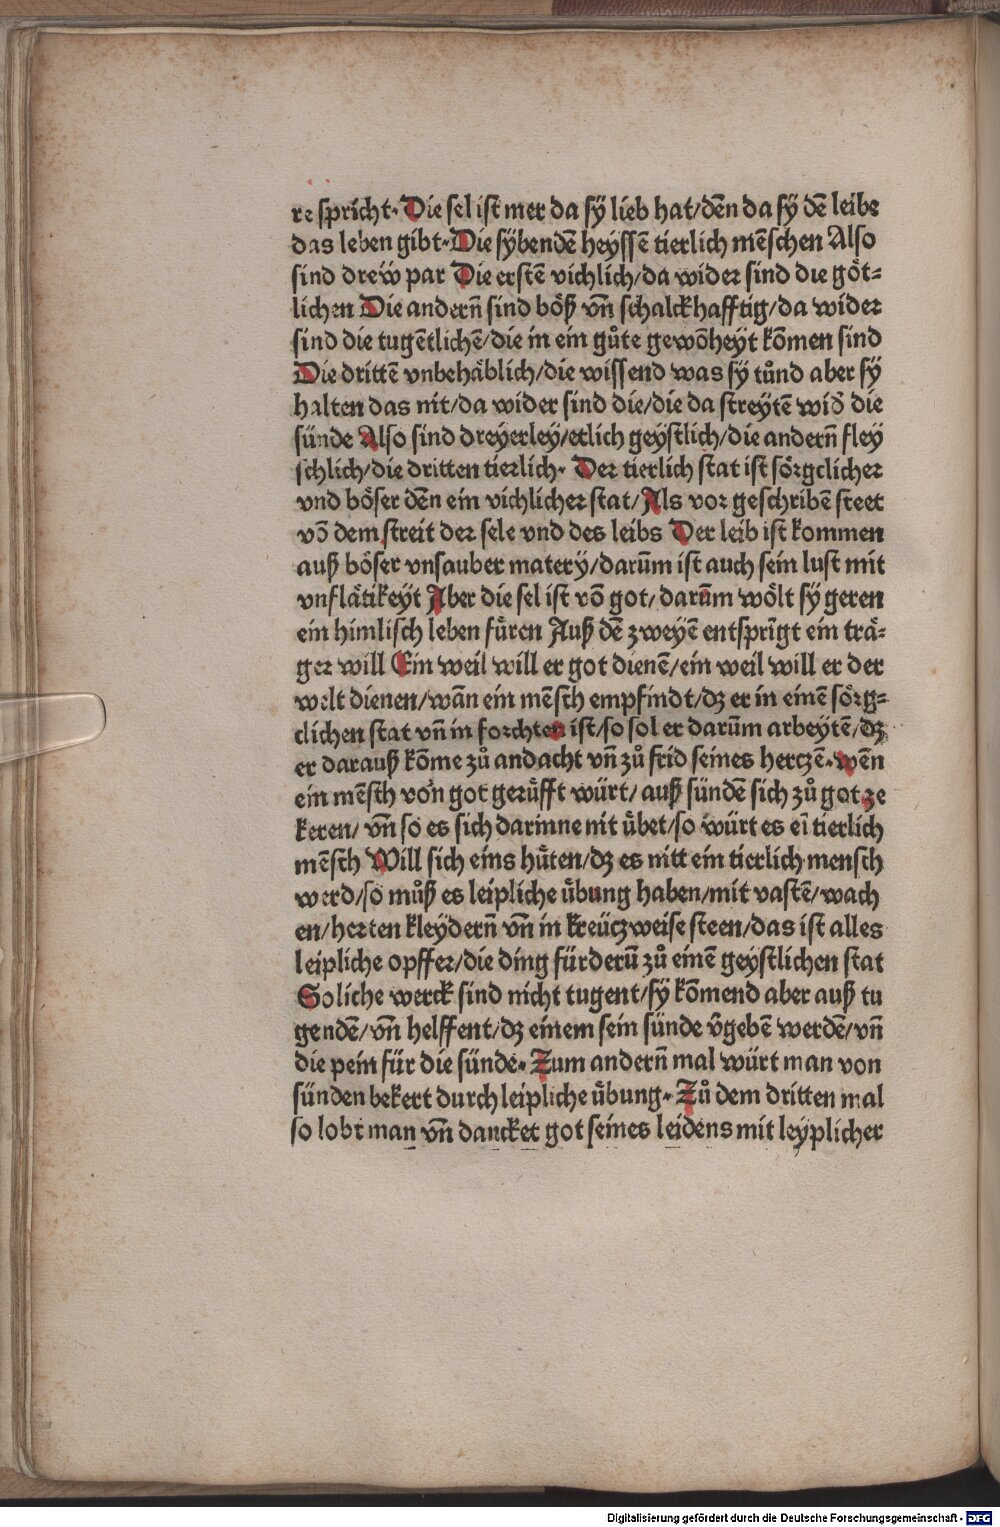 re spricht. Die sel ist mer da sÿ lieb hat/dēn da sÿ dē leibe
das leben gibt. Die sÿbendē heyssē tierlich mēschen Also
sind drew̋ par Die erstē vichlich/da wider sind die göt⸗
lichen Die andern̄ sind böß vn̄ schalckhafftig/da wider
sind die tugētlichē/die in ein gůte gewōheyt kōmen sind
Die drittē vnbehäblich/die wissend was sÿ tůnd aber sÿ
halten das nit/da wider sind die/die da streytē wid̄ die
sünde Also sind dreyerley/etlich geystlich/die andern̄ fley
schlich/die dritten tierlich. Der tierlich stat ist sörgclicher
vnd böser dēn ein vichlicher stat/Als vor geschribē steet
vō dem streit der sele vnd des leibs Der leib ist kommen
auß böser vnsauber matery/darūm ist auch sein lust mit
vnflätikeyt Aber die sel ist vō got/darūm wölt sÿ geren
ein himlisch leben füren Auß dē zweyē entspringt ein trä⸗
ger will Ein weil will er got dienē/ein weil will er der
welt dienen/wān ein mēsch empfindt/dz er in einē sörg⸗
clichen stat vn̄ in forchten ist/so sol er darūm arbeytē/dz
er darauß kōme zů andacht vn̄ zů frid seines herczē. wēn
ein mēsch von got gerüfft würt/auß sündē sich zů got ze
keren/vn̄ so es sich darinne nit übet/so würt es eī tierlich
mēsch Will sich eins hüten/dz es nitt ein tierlich mensch
werd/so můß es leipliche übung haben/mit vastē/wach
en/herten kleydern̄ vn̄ in kreüczweise steen/das ist alles
leipliche opffer/die ding fürderū zů einē geystlichen stat
Soliche werck sind nicht tugent/sÿ kōmend aber auß tu
gendē/vn̄ helffent/dz einem sein sünde v̄gebē werdē/vn̄
die pein für die sünde. Zum andern̄ mal würt man von
sünden bekert durch leipliche übung. Zů dem dritten mal
so lobt man vn̄ dancket got seines leidens mit leyplicher
Digitalisierung gefördert durch die Deutsche Forschungsgemeinschaft - DFG